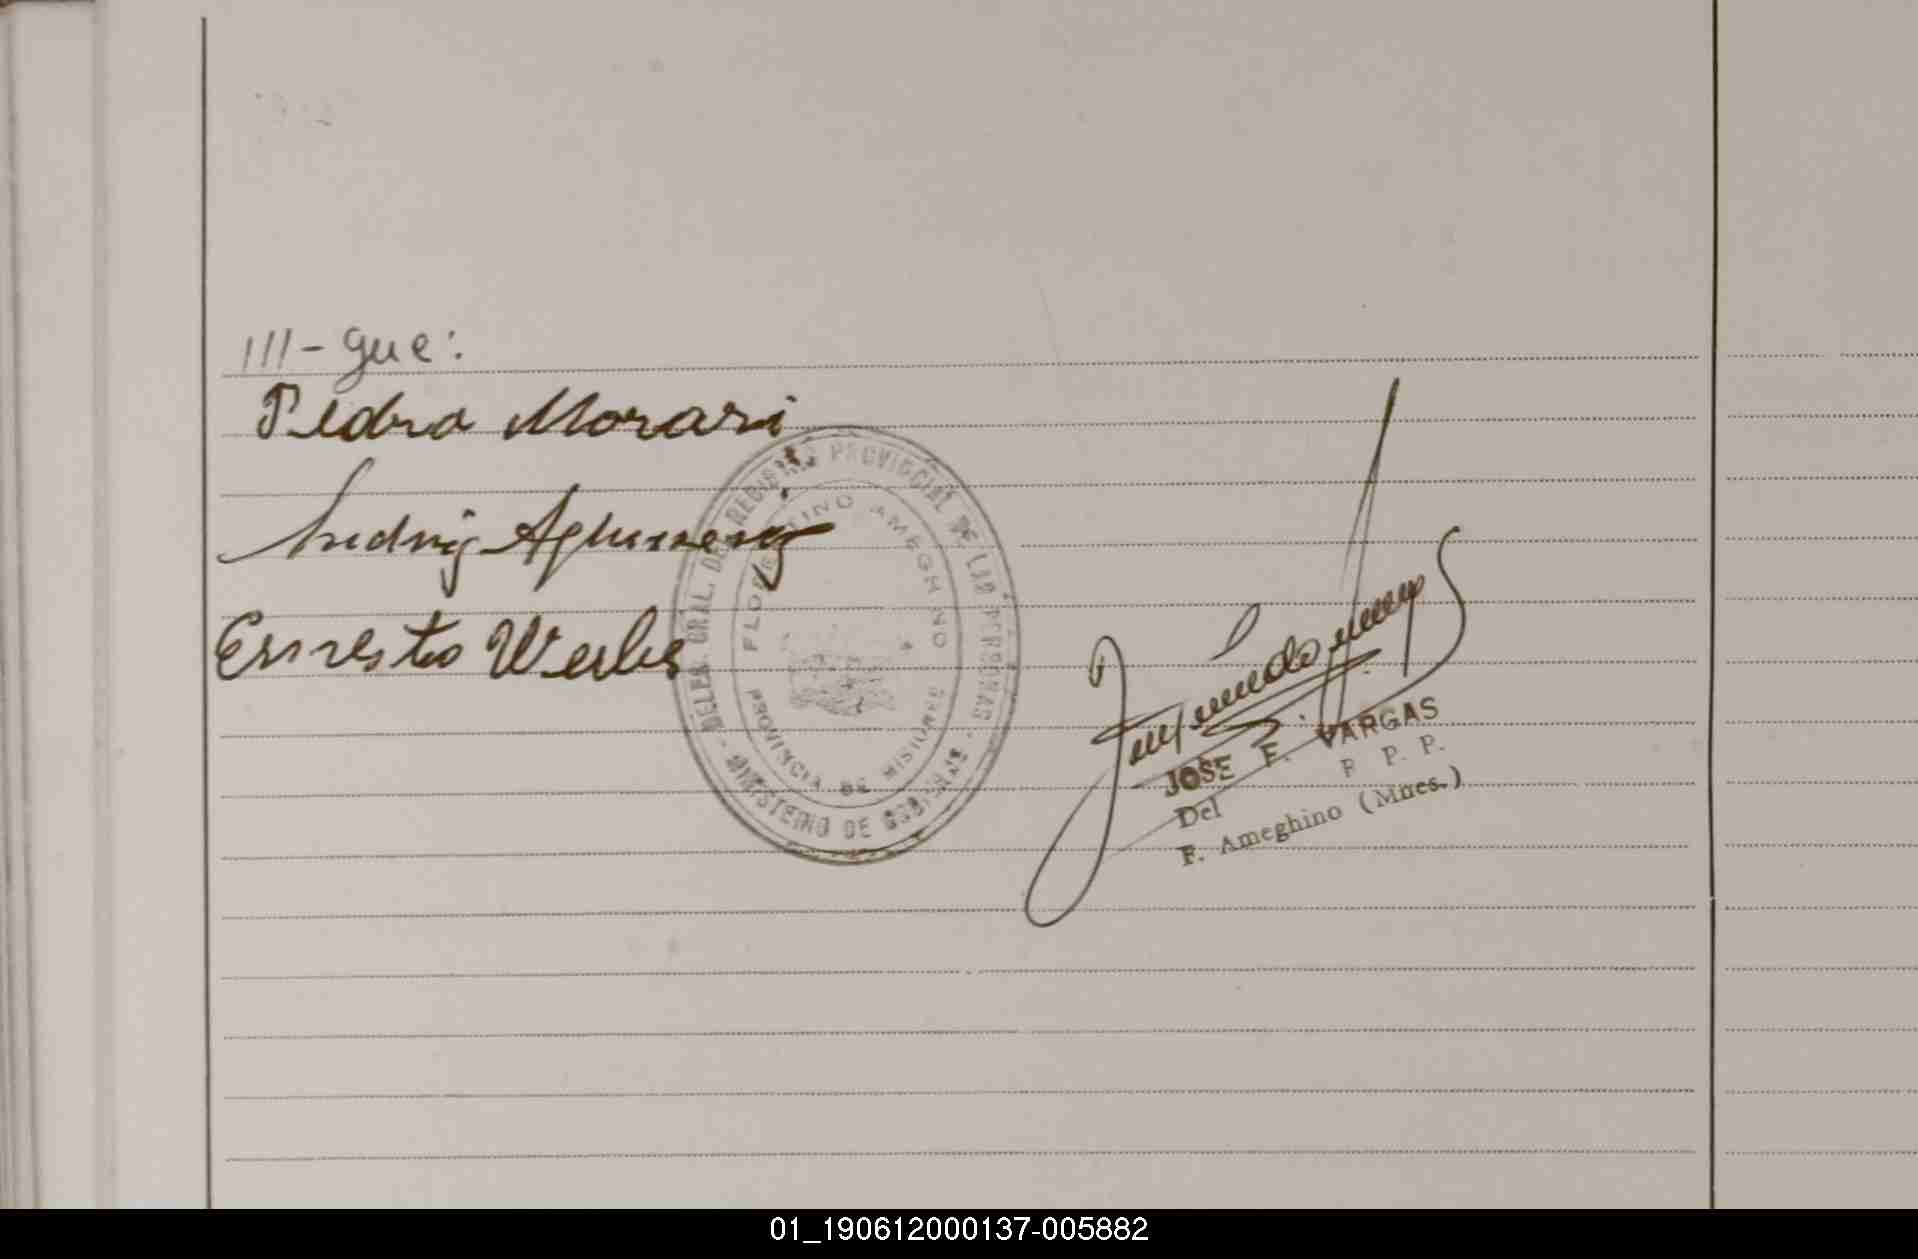 III-gue:
Pedro Morari
Ernesto Werle
DELEG. GRAL. DEL REGISTRO PROVINCIAL DE LAS PERSONAS
FLORENTINO AMEGHINO
PROVINCIA DE MISIONES
MINISTERIO DE GOBIERNO
JOSE E. VARGAS
Del R. P. P.
F. Ameghino (Mnes.)
01_190612000137-005882